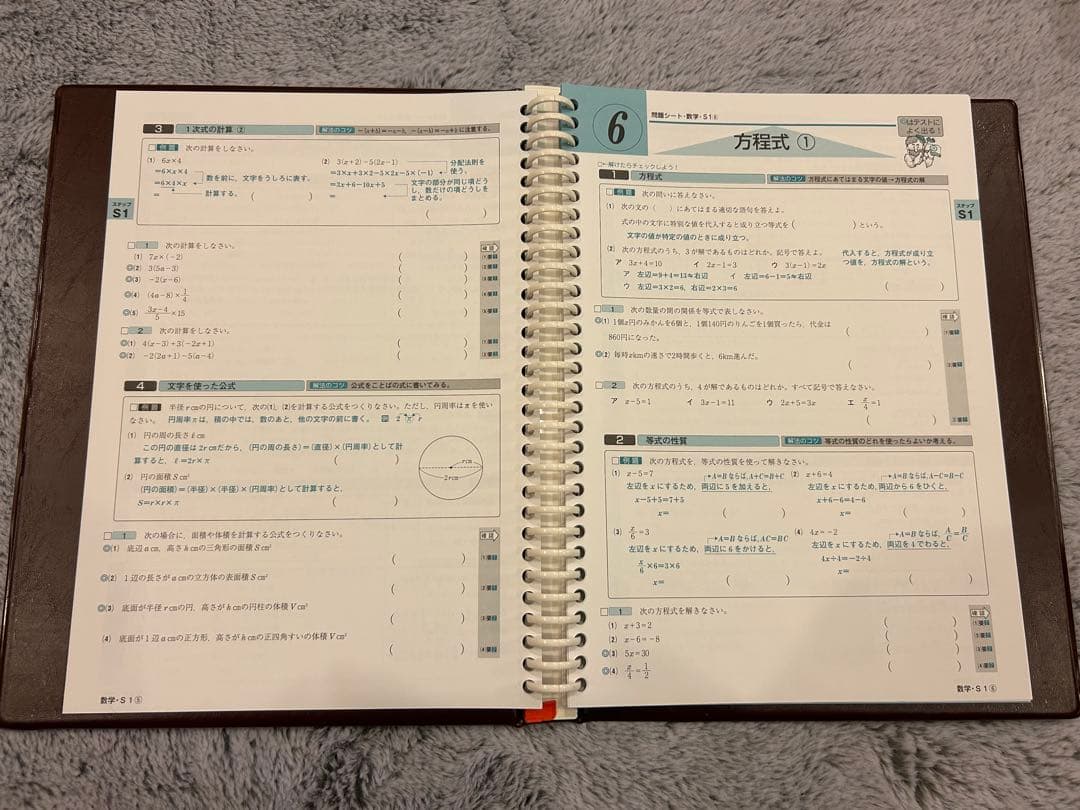 3 1次式の計算 ② 解法のコツ −(a+b)=−a−b, −(a−b)=−a+bに注意する。
例題 次の計算をしなさい。
(1) 6x×4
=6×x×4
=6×4×x
=
数を前に、文字をうしろに表す。
計算する。 ( )
(2) 3(x+2)−5(2x−1)
=3×x+3×2−5×2x−5×(−1)
=3x+6−10x+5
=
分配法則を
使う。
文字の部分が同じ項どう
し、数だけの項どうしを
まとめる。
( )
ステップ
S1
1 次の計算をしなさい。
確認
(1) 7x×(−2) ( )
◎(2) 3(5a−3) ( )
◎(3) −2(x−6) ( )
◎(4) (4a−8)×1/4 ( )
◎(5) (3x−4)/5×15 ( )
2 次の計算をしなさい。
◎(1) 4(x−3)+3(−2x+1) ( )
◎(2) −2(2a+1)−5(a−4) ( )
4 文字を使った公式 解法のコツ 公式をことばの式に書いてみる。
例題 半径rcmの円について、次の(1)、(2)を計算する公式をつくりなさい。ただし、円周率はπを使い
なさい。 円周率πは、積の中では、数のあと、他の文字の前に書く。
(1) 円の周の長さℓcm
この円の直径は2rcmだから、(円の周の長さ)=(直径)×(円周率)として計
算すると、ℓ=2r×π ( )
(2) 円の面積Scm²
(円の面積)=(半径)×(半径)×(円周率)として計算すると、
S=r×r×π ( )
rcm
2rcm
1 次の場合に、面積や体積を計算する公式をつくりなさい。
確認
◎(1) 底辺acm、高さhcmの三角形の面積Scm²
( )
◎(2) 1辺の長さがacmの立方体の表面積Scm²
( )
◎(3) 底面が半径rcmの円、高さがhcmの円柱の体積Vcm³
( )
(4) 底面が1辺acmの正方形、高さがhcmの正四角すいの体積Vcm³
( )
数学・S1⑤
6
問題シート・数学・S1⑥
方程式 ①
◎はテストに
よく出る!
□←解けたらチェックしよう!
1 方程式 解法のコツ 方程式にあてはまる文字の値→方程式の解
例題 次の問いに答えなさい。
(1) 次の文の( )にあてはまる適切な語句を答えよ。
式の中の文字に特別な値を代入すると成り立つ等式を( )という。
文字の値が特定の値のときに成り立つ。
(2) 次の方程式のうち、3が解であるものはどれか。記号で答えよ。
ア 3x+4=10 イ 2x−1=3 ウ 3(x−1)=2x
ア 左辺=9+4=13≒右辺 イ 左辺=6−1=5≒右辺
ウ 左辺=3×2=6, 右辺=2×3=6
代入すると、方程式が成り立
つ値を、方程式の解という。
( )
ステップ
S1
1 次の数量の間の関係を等式で表しなさい。
確認
◎(1) 1個x円のみかんを6個と、1個140円のりんごを1個買ったら、代金は
860円になった。
( )
◎(2) 毎時xkmの速さで2時間歩くと、6km進んだ。
( )
2 次の方程式のうち、4が解であるものはどれか。すべて記号で答えなさい。
ア x−5=1 イ 3x−1=11 ウ 2x+5=3x エ x/4=1
( )
2 等式の性質 解法のコツ 等式の性質のどれを使ったらよいか考える。
例題 次の方程式を、等式の性質を使って解きなさい。
(1) x−5=7 A=Bならば、A+C=B+C
左辺をxにするため、両辺に5を加えると、
x−5+5=7+5
x= ( )
(2) x+6=4 A=Bならば、A−C=B−C
左辺をxにするため、両辺から6をひくと、
x+6−6=4−6
x= ( )
(3) x/6=3 A=Bならば、AC=BC
左辺をxにするため、両辺に6をかけると、
x/6×6=3×6
x= ( )
(4) 4x=−2 A=Bならば、A/C=B/C
左辺をxにするため、両辺を4でわると、
4x÷4=−2÷4
x= ( )
1 次の方程式を解きなさい。
確認
(1) x+3=2 ( )
(2) x−6=−8 ( )
◎(3) 5x=30 ( )
◎(4) x/4=1/2 ( )
数学・S1⑥